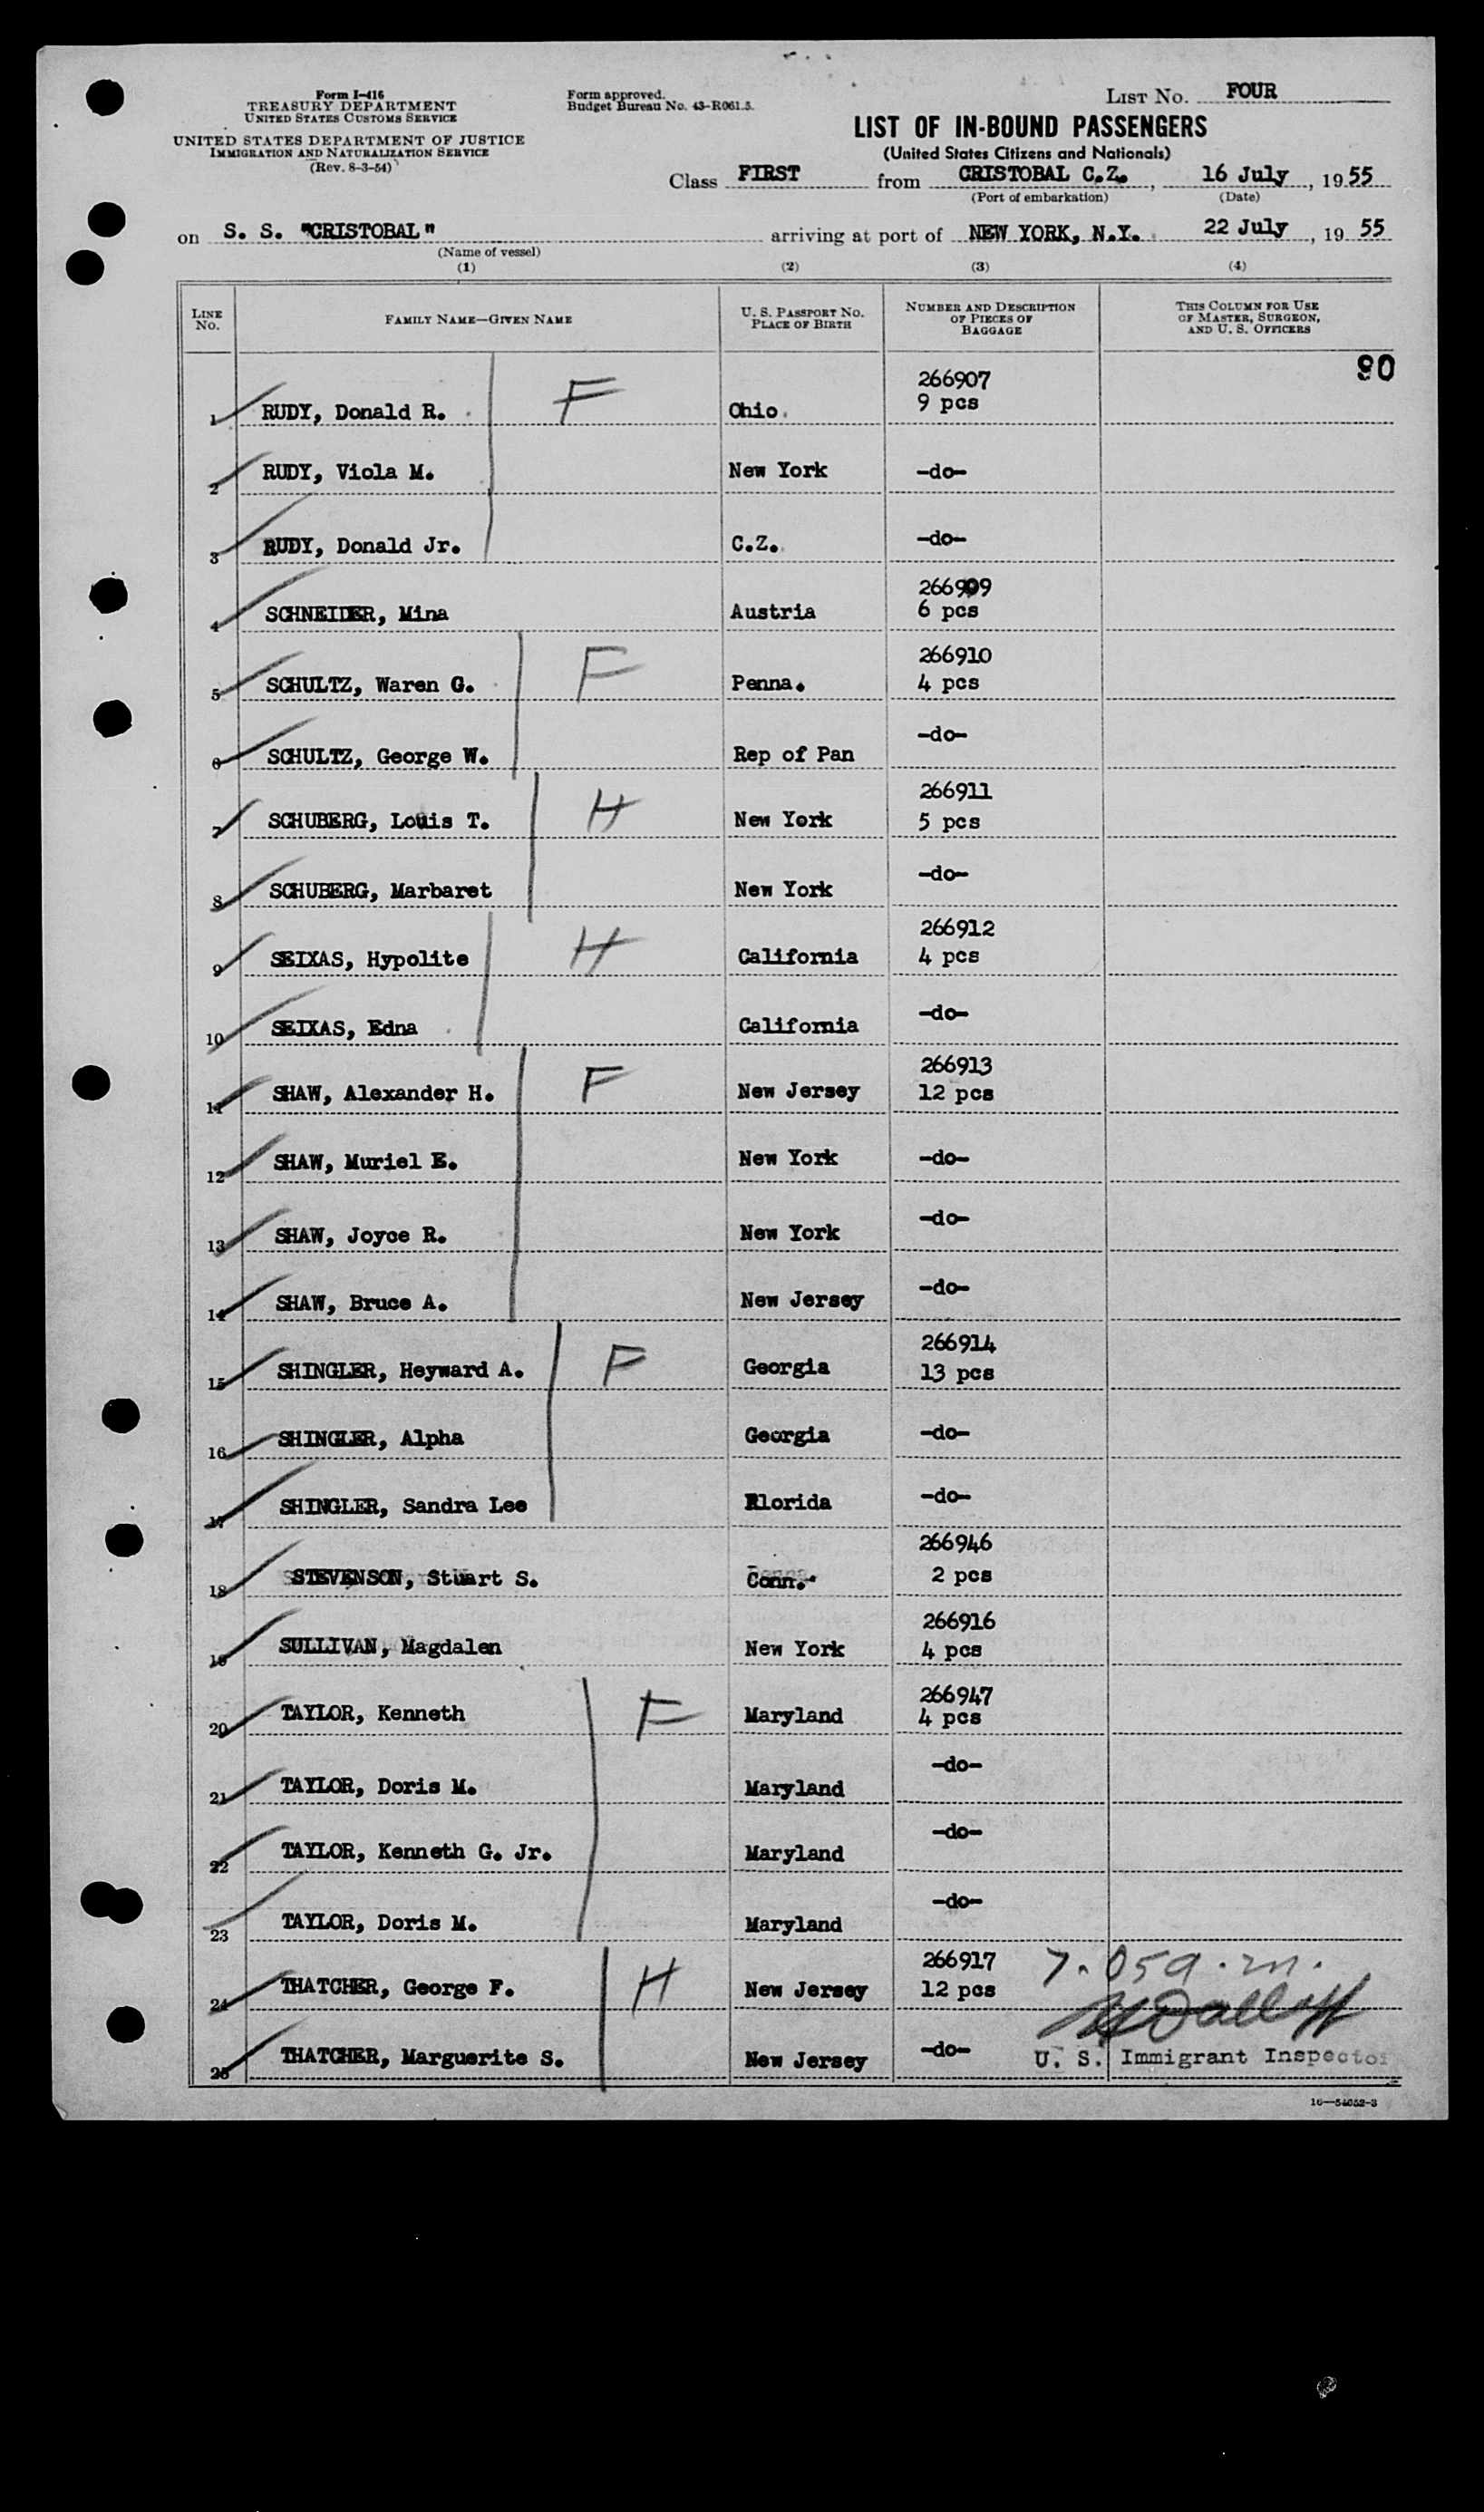 Form I-416
TREASURY DEPARTMENT
UNITED STATES CUSTOMS SERVICE
UNITED STATES DEPARTMENT OF JUSTICE
IMMIGRATION AND NATURALIZATION SERVICE
(Rev. 8-3-54)
Form approved.
Budget Bureau No. 43-R061.5.
LIST NO. FOUR
LIST OF IN-BOUND PASSENGERS
(United States Citizens and Nationals)
Class FIRST from CRISTOBAL C.Z., 16 July, 1955
(Port of embarkation) (Date)
on S. S. "CRISTOBAL" arriving at port of NEW YORK, N.Y. 22 July, 19 55
(Name of vessel)
(1) (2) (3) (4)
LINE NO. FAMILY NAME—GIVEN NAME U. S. PASSPORT NO. PLACE OF BIRTH NUMBER AND DESCRIPTION OF PIECES OF BAGGAGE THIS COLUMN FOR USE OF MASTER, SURGEON, AND U. S. OFFICERS
90
1 RUDY, Donald R. F Ohio 266907 9 pcs
2 RUDY, Viola M. New York -do-
3 RUDY, Donald Jr. C.Z. -do-
4 SCHNEIDER, Mina Austria 266909 6 pcs
5 SCHULTZ, Waren G. F Penna. 266910 4 pcs
6 SCHULTZ, George W. Rep of Pan -do-
7 SCHUBERG, Louis T. H New York 266911 5 pcs
8 SCHUBERG, Marbaret New York -do-
9 SEIXAS, Hypolite H California 266912 4 pcs
10 SEIXAS, Edna California -do-
11 SHAW, Alexander H. F New Jersey 266913 12 pcs
12 SHAW, Muriel E. New York -do-
13 SHAW, Joyce R. New York -do-
14 SHAW, Bruce A. New Jersey -do-
15 SHINGLER, Heyward A. F Georgia 266914 13 pcs
16 SHINGLER, Alpha Georgia -do-
17 SHINGLER, Sandra Lee Florida -do-
18 STEVENSON, Stuart S. Conn. 266946 2 pcs
19 SULLIVAN, Magdalen New York 266916 4 pcs
20 TAYLOR, Kenneth F Maryland 266947 4 pcs
21 TAYLOR, Doris M. Maryland -do-
22 TAYLOR, Kenneth G. Jr. Maryland -do-
23 TAYLOR, Doris M. Maryland -do-
24 THATCHER, George F. H New Jersey 266917 12 pcs
25 THATCHER, Marguerite S. New Jersey -do-
U. S. Immigrant Inspector
16—54052-3